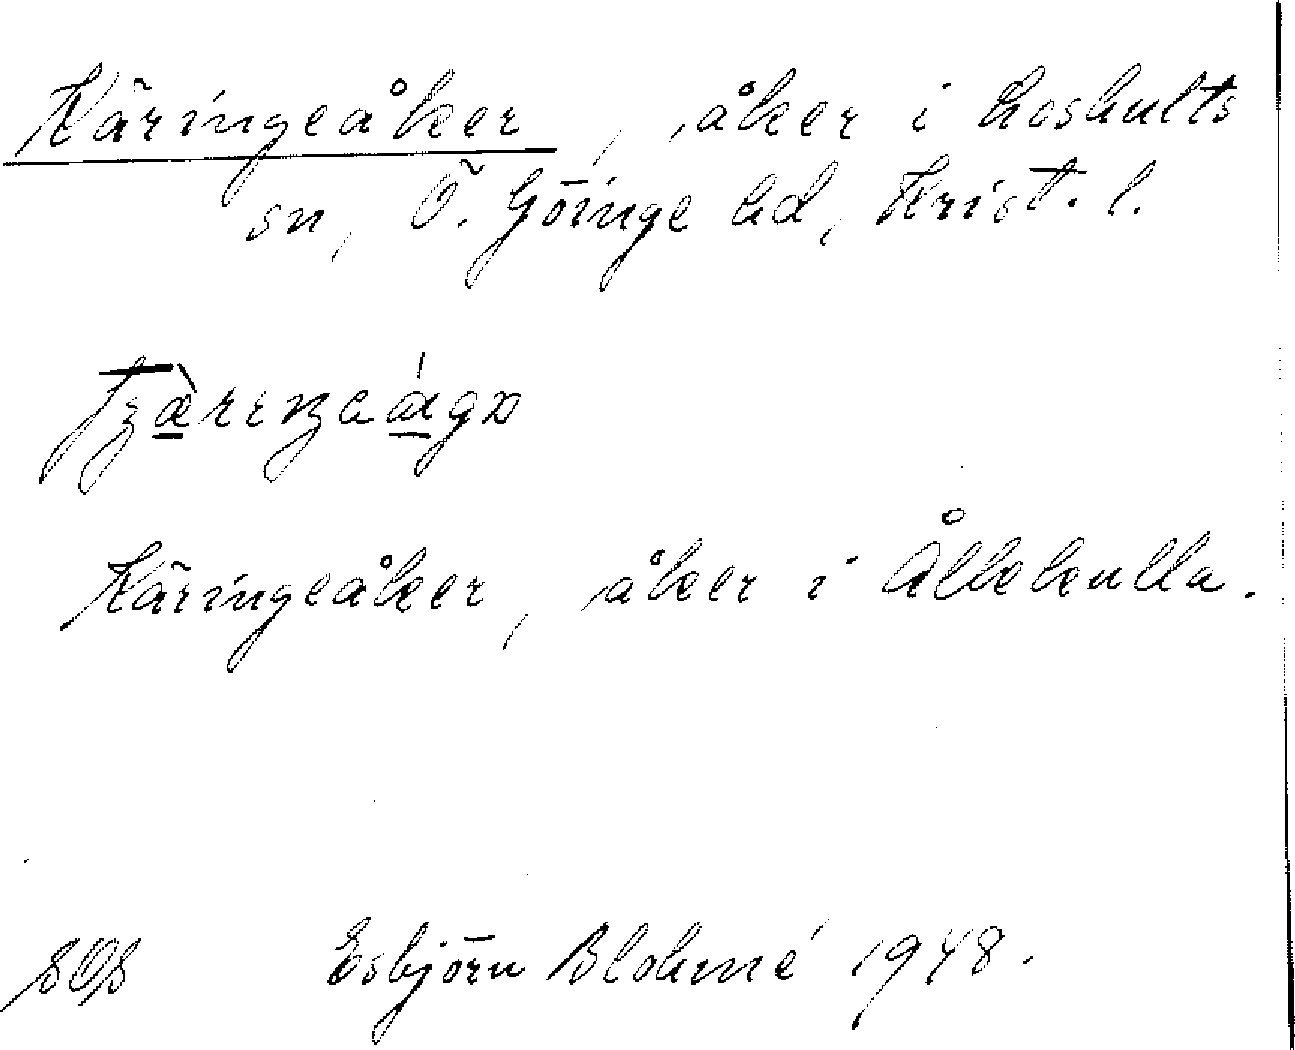 Käringeåker, åker i Loshults
sn, Ö. Göinge hd, Krist. l.
Käringeåker, åker i Ållekulla.
Esbjörn Blohmé 1948.